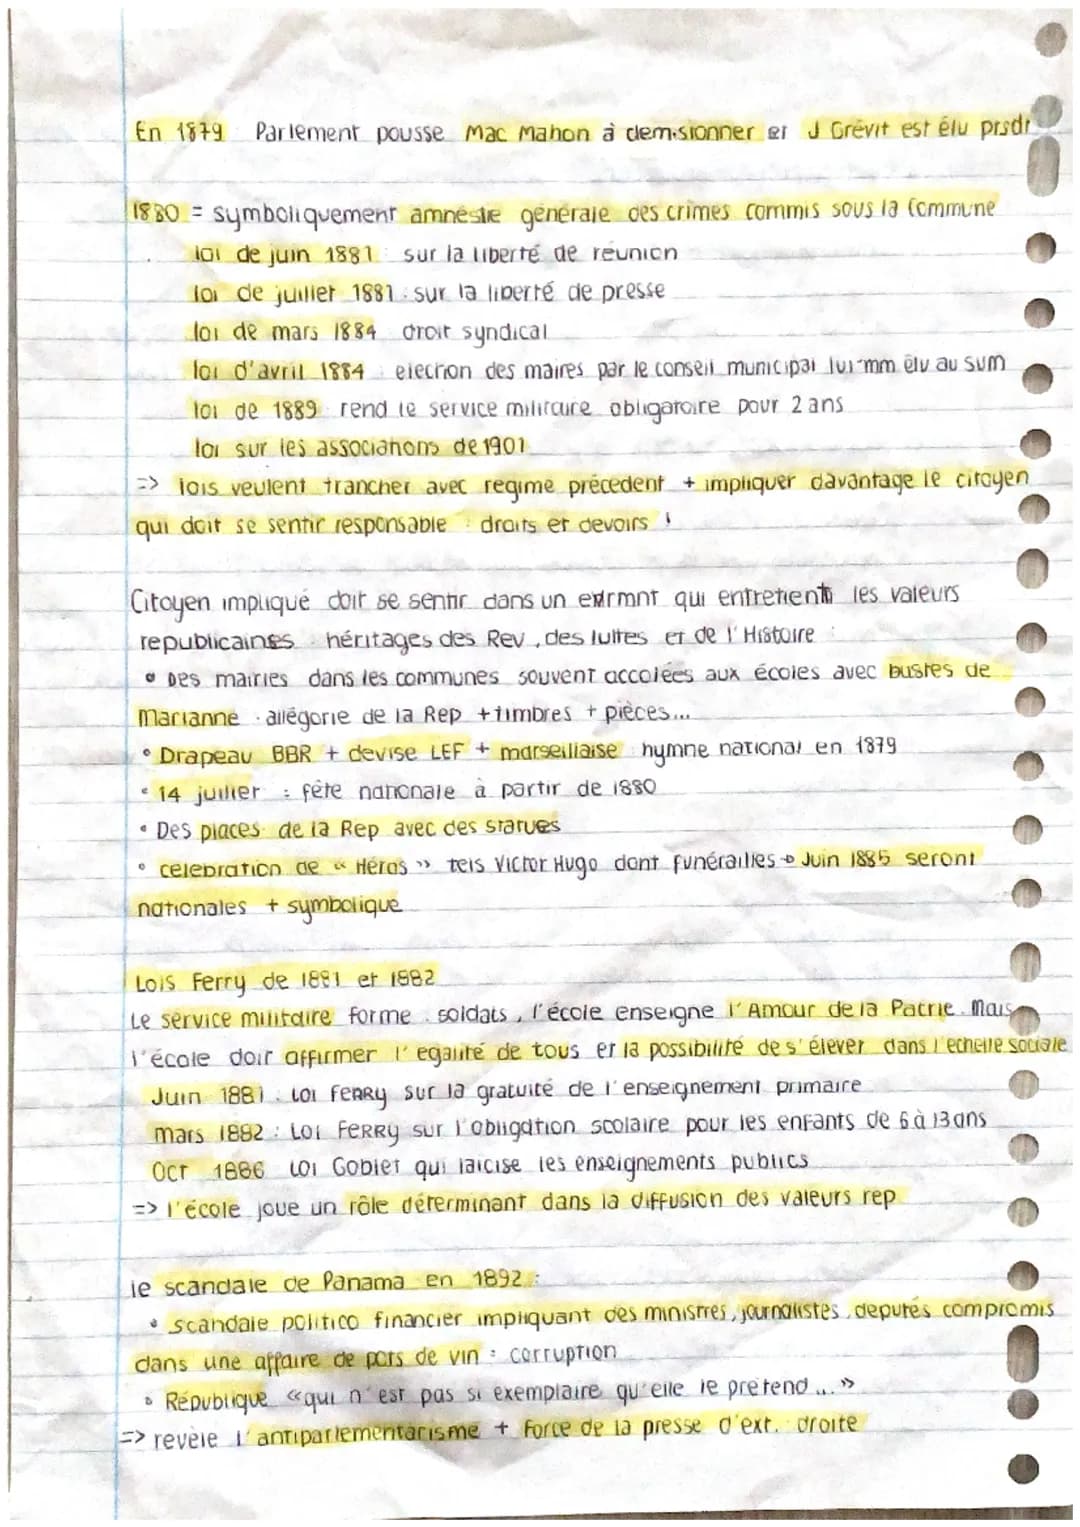 En 1879 Parlement pousse Mac Mahon à demisionner et J Grévit est élu prsdt
1880 = symboliquement amnéstie générale des crimes commis sous la Commune
loi de juin 1881 : sur la liberté de réunion
loi de juillet 1881 : sur la liberté de presse
loi de mars 1884 droit syndical
loi d'avril 1884 : election des maires par le conseil municipal lui-mm élu au sum
loi de 1889 rend le service militaire obligatoire pour 2 ans
loi sur les associations de 1901
=> lois veulent trancher avec regime précedent + impliquer davantage le citoyen
qui doit se sentir responsable : droits et devoirs !
Citoyen impliqué doit se sentir dans un qui entretient les valeurs
republicaines héritages des Rev, des luttes et de l'Histoire :
• Des mairies dans les communes souvent accolées aux écoles avec bustes de
Marianne . allégorie de la Rep + timbres + pièces...
• Drapeau BBR + devise LEF + marseillaise : hymne national en 1879
• 14 juillet : fête nationale à partir de 1880
• Des places de la Rep avec des statues
• celebration de « Héros » tels Victor Hugo dont funérailles → Juin 1885 seront
nationales + symbolique
Lois Ferry de 1881 et 1882
Le service militaire forme . soldats, l'école enseigne l'Amour de la Patrie. Mais
l'école doit affirmer l'egalité de tous et la possibilité de s'élever dans l'echelle sociale
Juin 1881 : Loi FERRY sur la gratuité de l'enseignement primaire
mars 1882 : Loi FERRY sur l'obligation scolaire pour les enfants de 6 à 13 ans
Oct 1886 Loi Goblet qui laicise les enseignements publics
=> l'école joue un rôle déterminant dans la diffusion des valeurs rep
le scandale de Panama en 1892 :
• scandale politico financier impliquant des ministres, journalistes, deputés compromis
dans une affaire de pots de vin : corruption
• République « qui n'est pas si exemplaire qu'elle le prétend ... »
=> revele l'antiparlementarisme + Force de la presse d'ext. droite